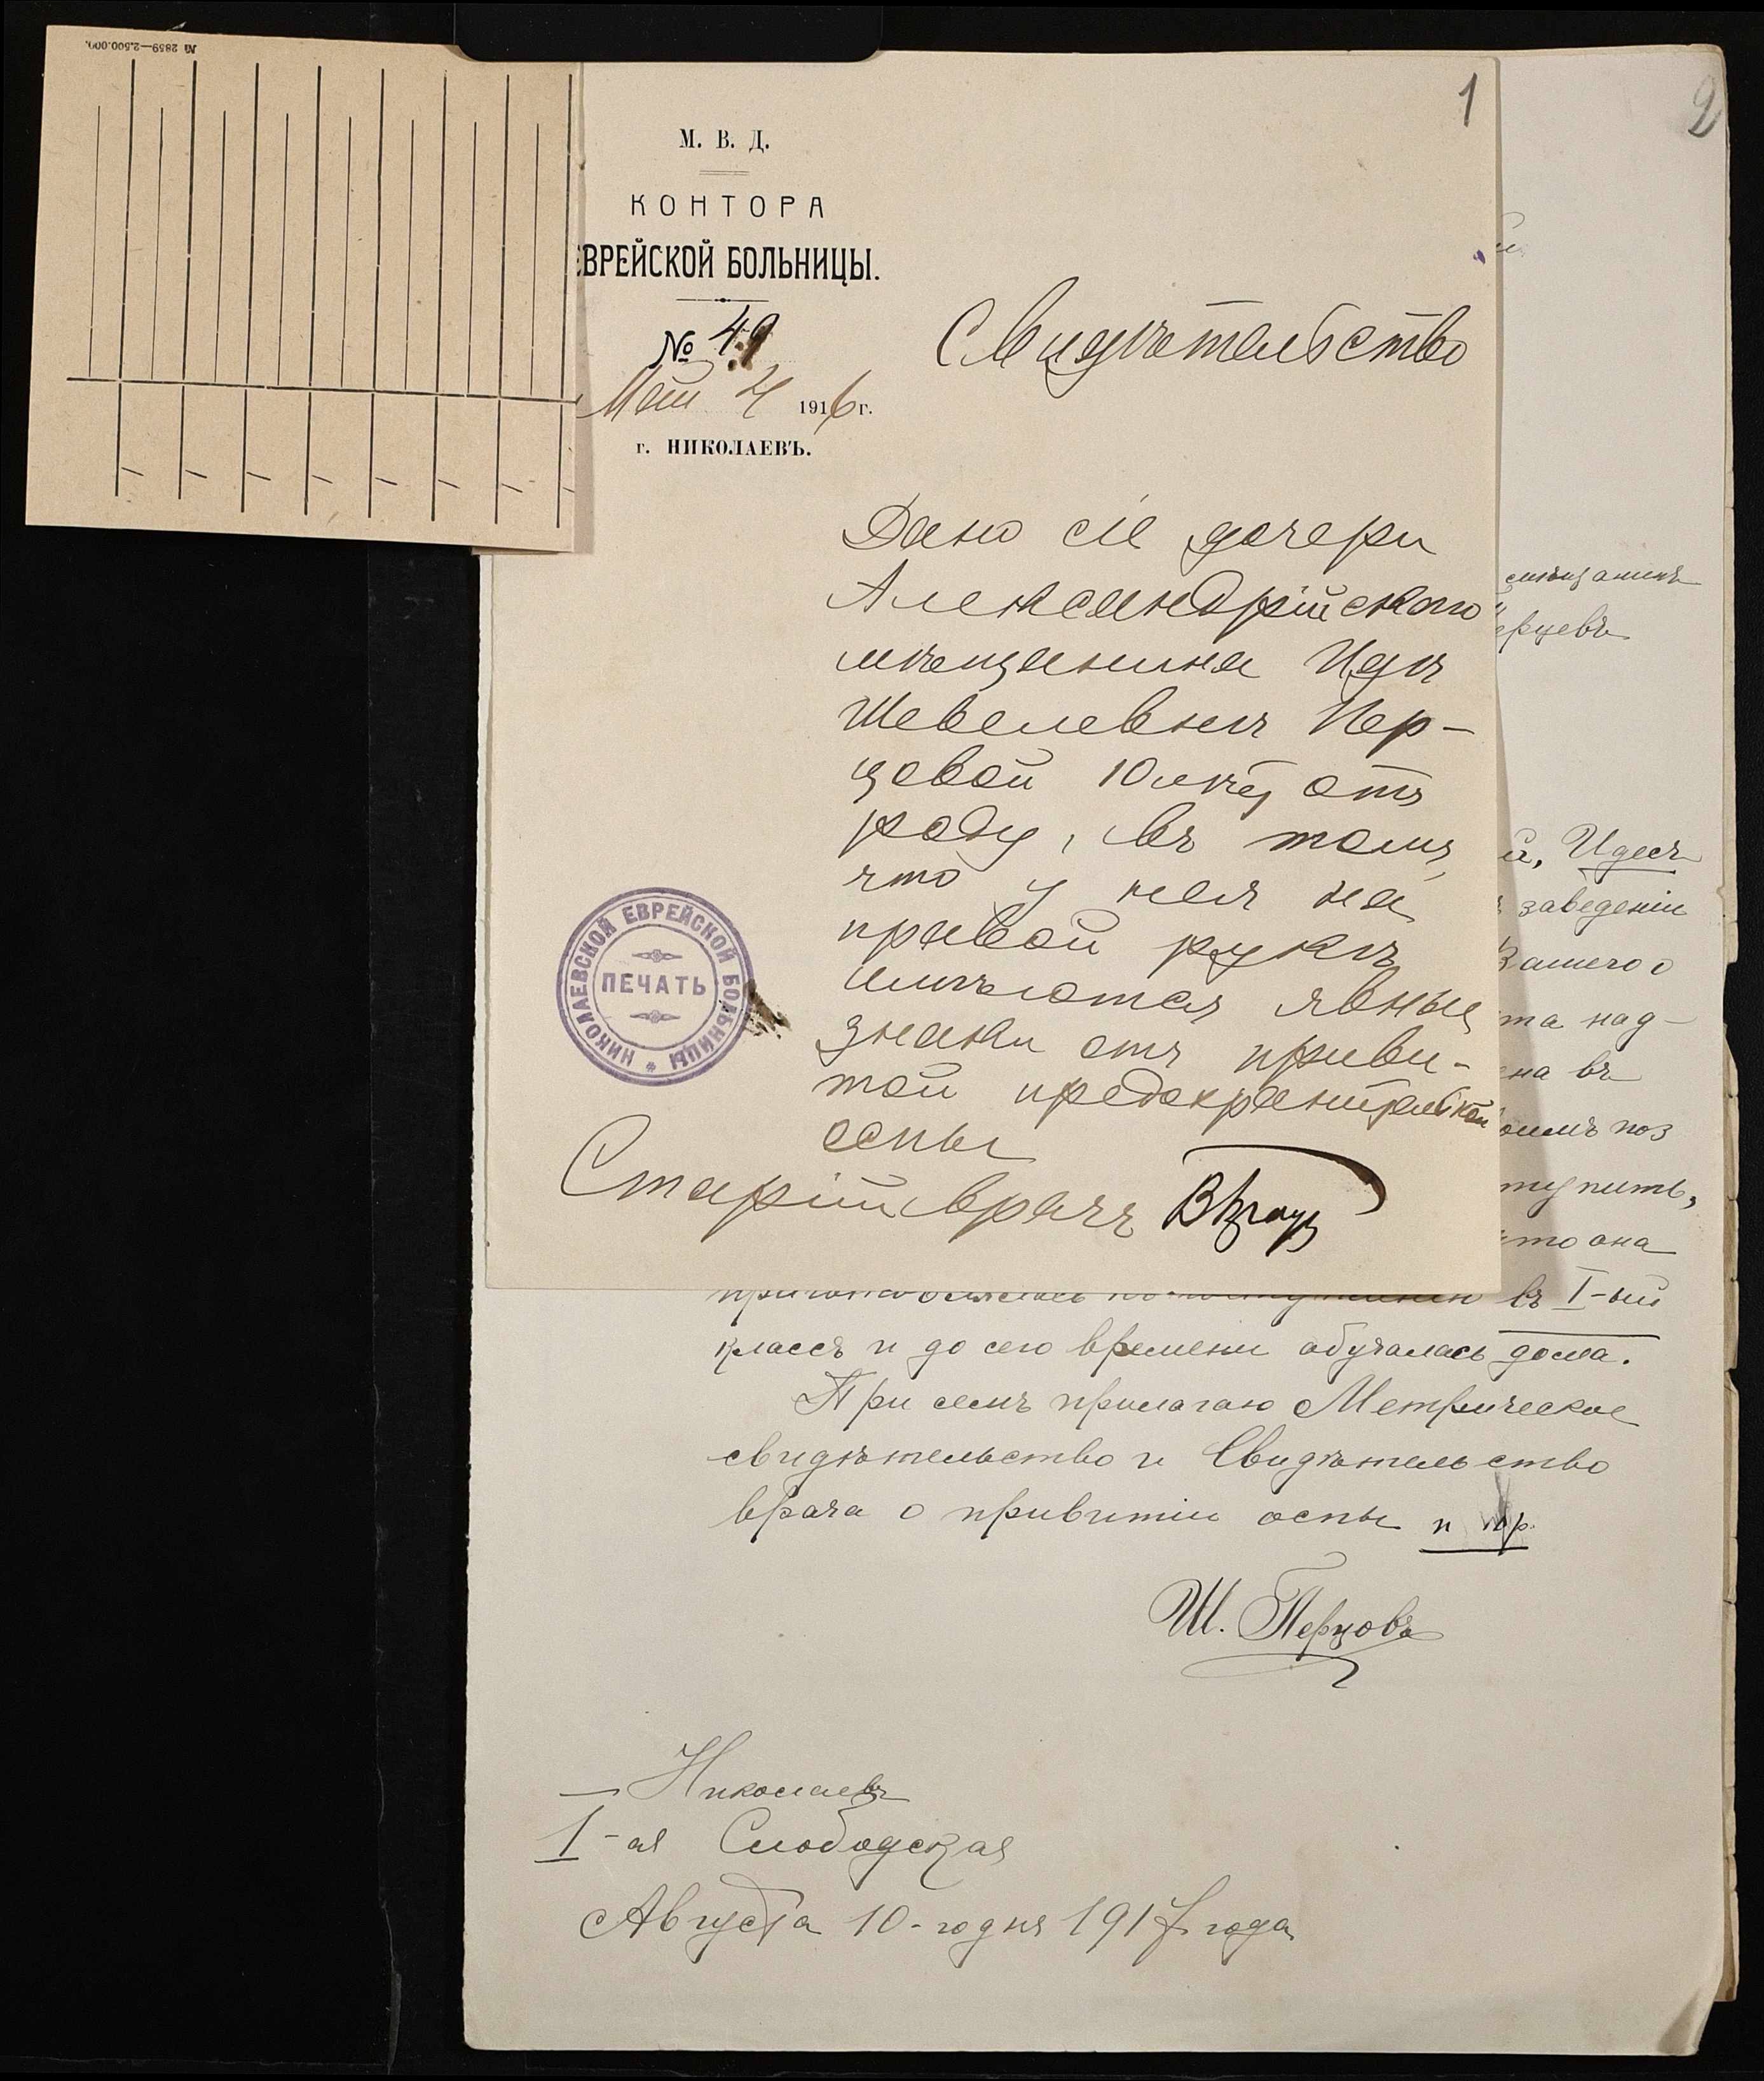 № 2859—2.500.000.
1
2
М. В. Д.
КОНТОРА
ЕВРЕЙСКОЙ БОЛЬНИЦЫ.
№ 49
Маія 4 1916 г.
г. НИКОЛАЕВЪ.
Свидѣтельство
Дано сіе дочери
Александрійскаго
мѣщанина Идѣ
Шевелевнѣ Пер-
цовой 10 лѣтъ отъ
роду, въ томъ,
что у нея на
правой рукѣ
имѣются явные
знаки отъ приви-
той предохранительной
оспы
Старшій врачъ
НИКОЛАЕВСКОЙ ЕВРЕЙСКОЙ БОЛЬНИЦЫ *
ПЕЧАТЬ
ерцевъ
й, Идесъ
заведеніи
Вашего о
та над-
на въ
поз
тупить,
что она
въ I-ый
классъ и до сего времени обучалась дома.
При семъ прилагаю Метрическое
свидѣтельство и Свидѣтельство
врача о привитіи оспы
Ш. Перцовъ
Николаевъ
1-ая Слободская
Августа 10-го дня 1917 года